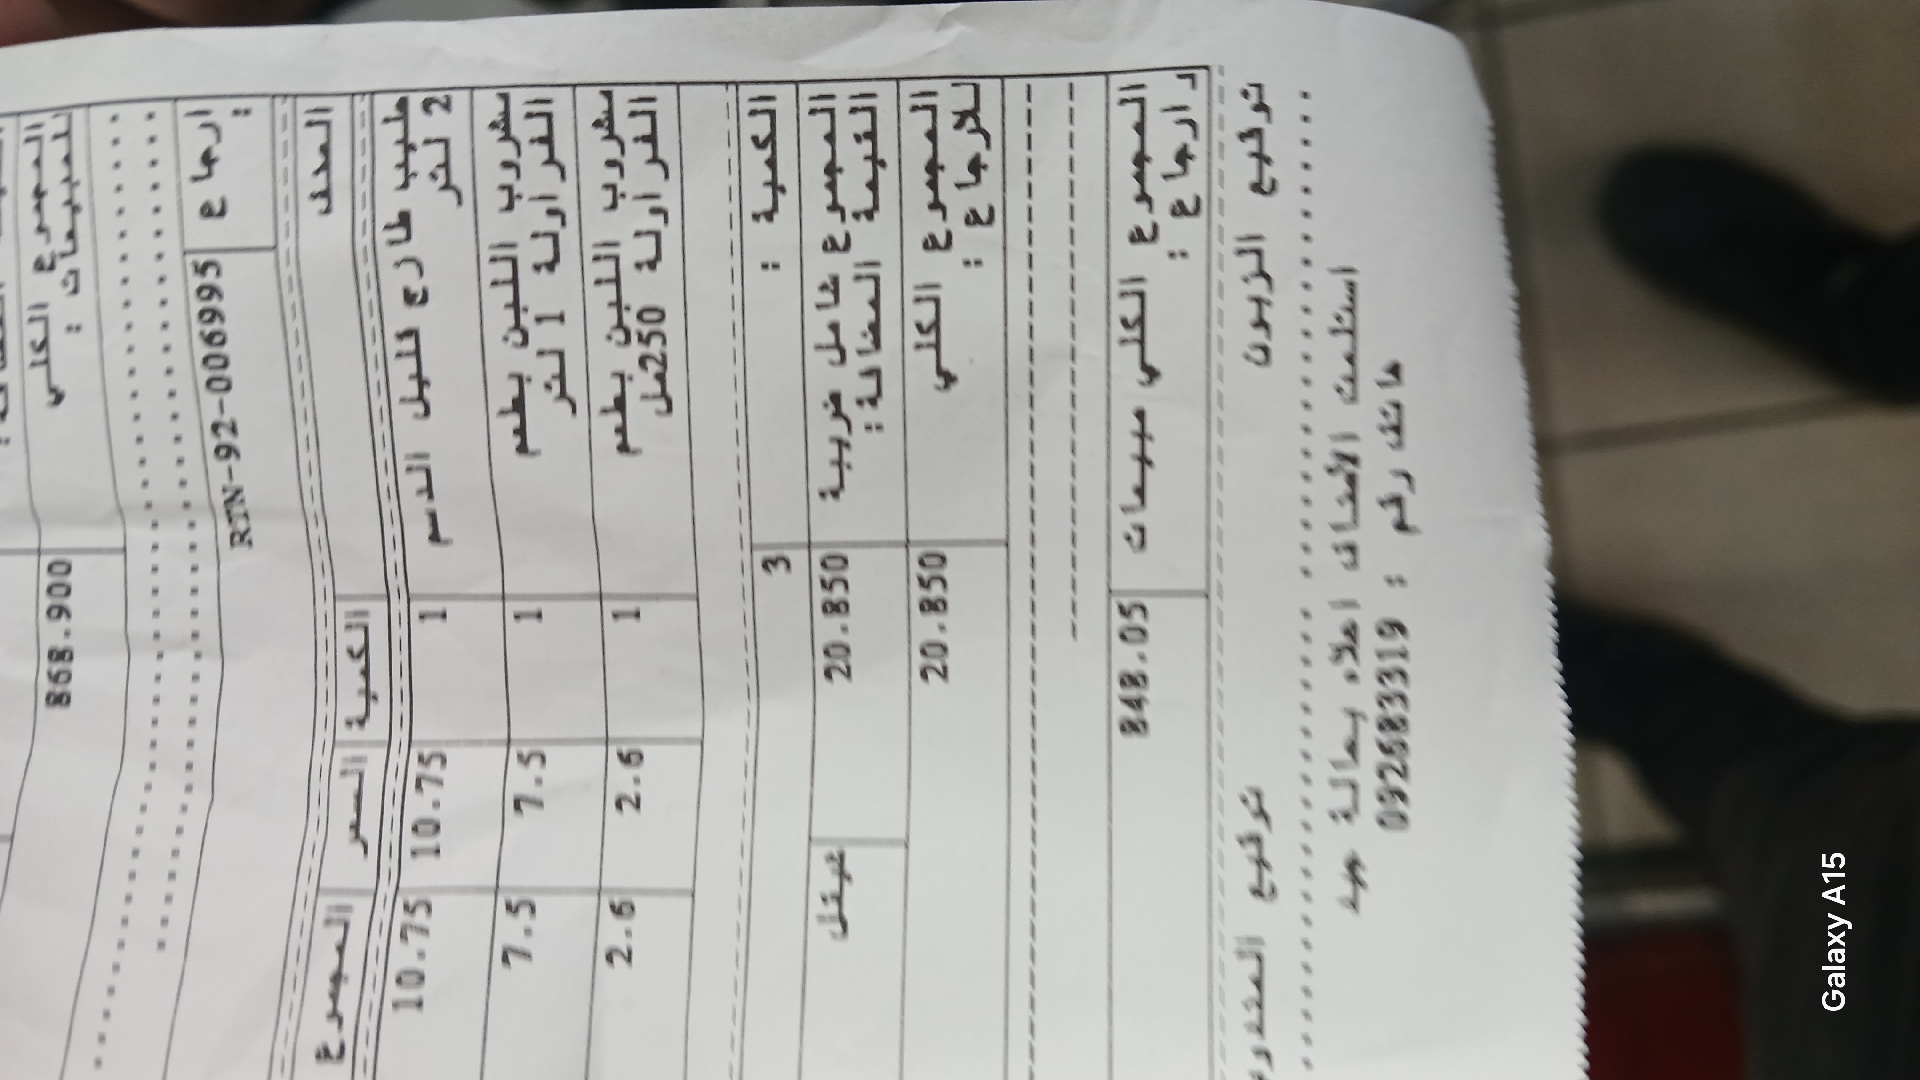 المجموع الكلي 868.900
للمبيعات :
ارجاع RTN-92-006995
:
الصنف الكمية السعر المجموع
حليب طازج قليل الدسم 1 10.75 10.75
2 لتر
مشروب اللبن بطعم 1 7.5 7.5
الفراولة 1 لتر
مشروب اللبن بطعم 1 2.6 2.6
الفراولة 250مل
الكمية : 3
المجموع شامل ضريبة 20.850
القيمة المضافة :
المجموع الكلي 20.850
للارجاع :
المجموع الكلي مبيعات 848.05
ارجاع :
توقيع الزبون توقيع المندوب
استلمت الأصناف اعلاه بحالة جيد
هاتف رقم : 0926833319
Galaxy A15